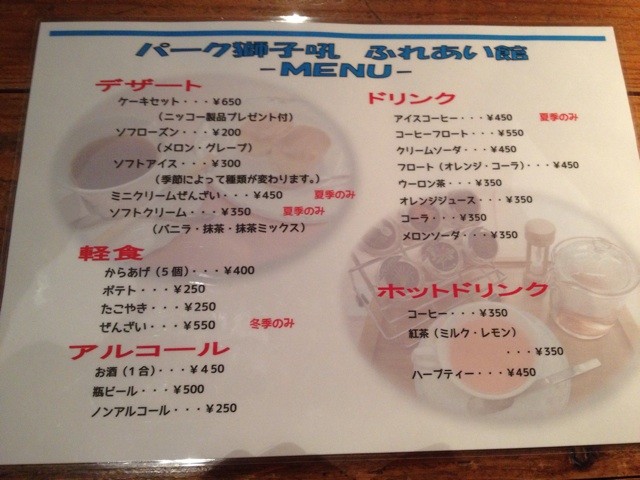 パーク獅子吼 ふれあい館
-MENU-
デザート
ケーキセット・・・¥650
(ニッコー製品プレゼント付)
ソフローズン・・・¥200
(メロン・グレープ)
ソフトアイス・・・¥300
(季節によって種類が変わります。)
ミニクリームぜんざい・・・¥450 夏季のみ
ソフトクリーム・・・¥350 夏季のみ
(バニラ・抹茶・抹茶ミックス)
軽食
からあげ(5個)・・・¥400
ポテト・・・¥250
たこやき・・・¥250
ぜんざい・・・¥550 冬季のみ
アルコール
お酒(1合)・・・¥450
瓶ビール・・・¥500
ノンアルコール・・・¥250
ドリンク
アイスコーヒー・・・¥450 夏季のみ
コーヒーフロート・・・¥550
クリームソーダ・・・¥450
フロート(オレンジ・コーラ)・・・¥450
ウーロン茶・・・¥350
オレンジジュース・・・¥350
コーラ・・・¥350
メロンソーダ・・・¥350
ホットドリンク
コーヒー・・・¥350
紅茶(ミルク・レモン)
・・・¥350
ハーブティー・・・¥450